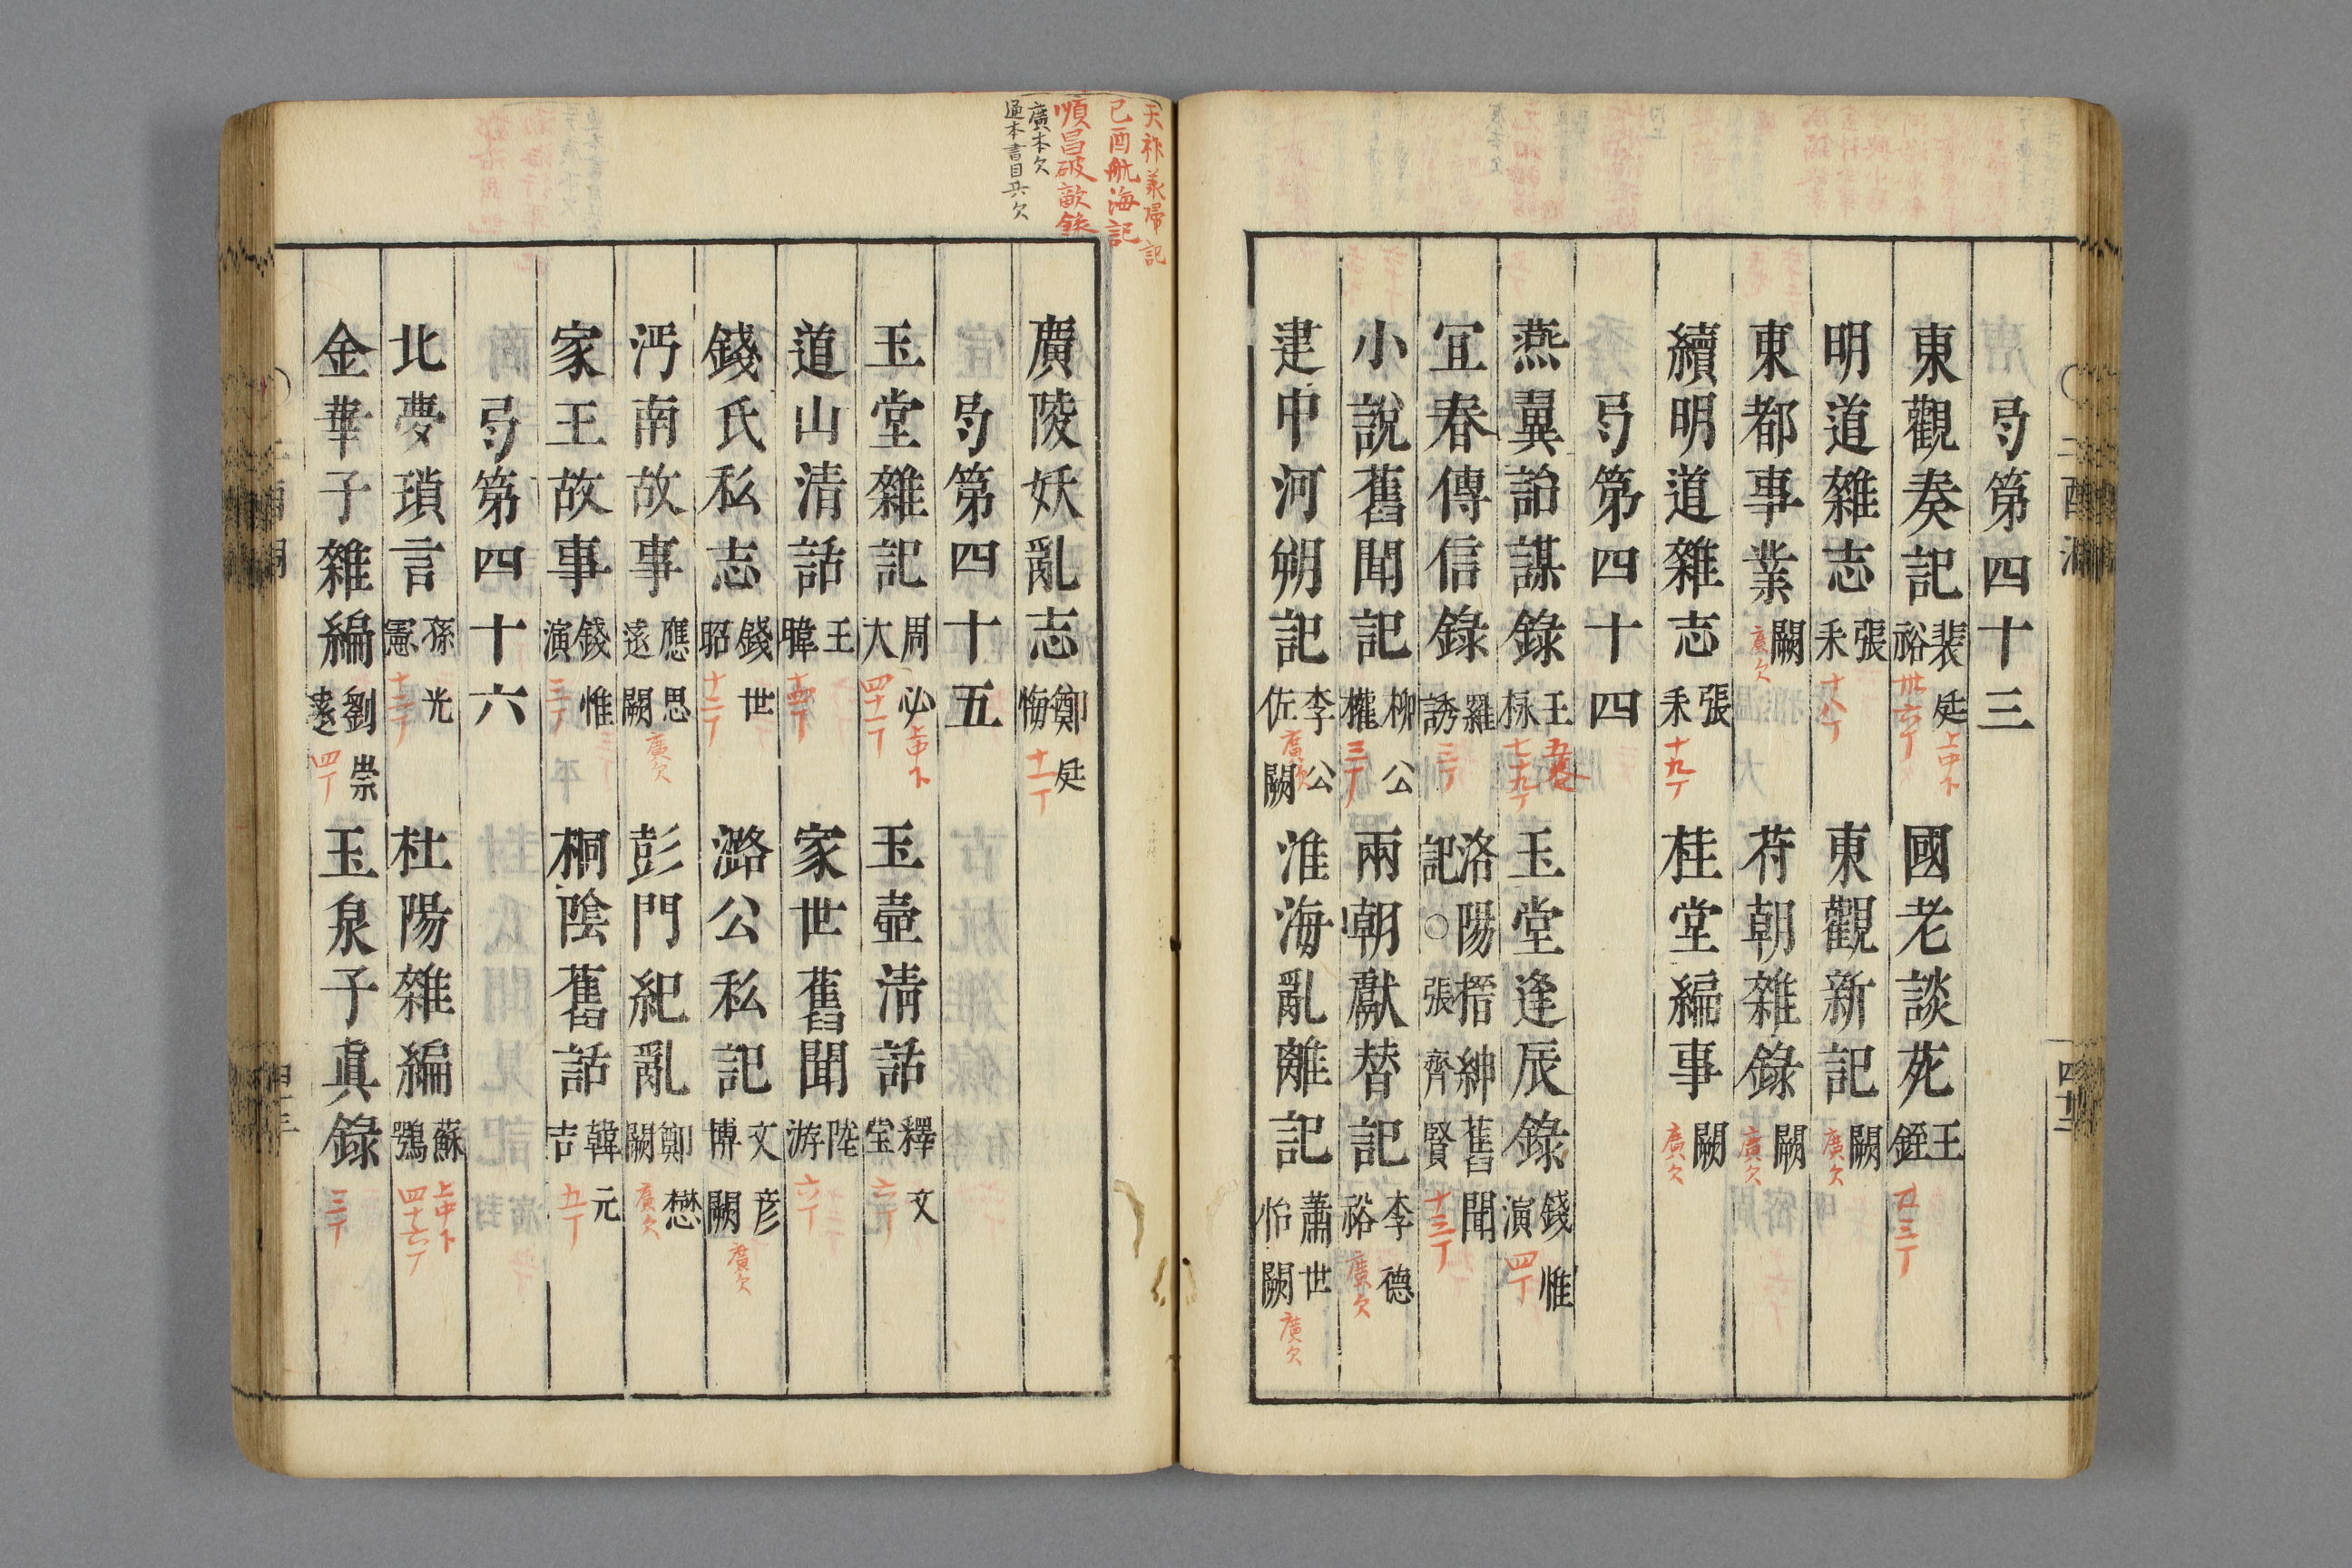 弓第四十三
東觀奏記 裴廷裕 上中下 卅六丁 國老談苑 王銍 五三丁
明道雜志 張耒 十八丁 東觀新記 闕 廣欠
東都事業 闕 廣欠 苻朝雜錄 闕 廣欠
續明道雜志 張耒 十九丁 桂堂編事 闕 廣欠
弓第四十四
燕翼詒謀錄 王栐 五卷 七十九丁 玉堂逢辰錄 錢惟演 四丁
冝春傳信錄 羅誘 三丁 洛陽搢紳舊聞記〇張齊賢 十三丁
小說舊聞記 柳公權 三丁 兩朝獻替記 李德裕 廣欠
建中河朔記 李公佐 闕 廣欠 淮海亂離記 蕭世怡 闕 廣欠
天祚義帰記
己酉航海記
順昌破敵錄
廣本欠
通本書目共欠
廣陵妖亂志 鄭廷誨 十一丁
弓第四十五
玉堂雜記 周必大 上中下 四十一丁 玉壺清話 釋文瑩 六丁
道山清話 王暐 十四丁 家世舊聞 陸游 六丁
錢氏私志 錢世昭 十二丁 潞公私記 文彦博 闕 廣欠
沔南故事 應思遠 闕 廣欠 彭門紀亂 鄭樵 闕 廣欠
家王故事 錢惟演 三丁 桐陰舊話 韓元吉 五丁
弓第四十六
北夢瑣言 孫光憲 十二丁 杜陽雜編 蘇鶚 上中下 四十六丁
金華子雜編 劉崇遠 四丁 玉泉子真錄 三丁